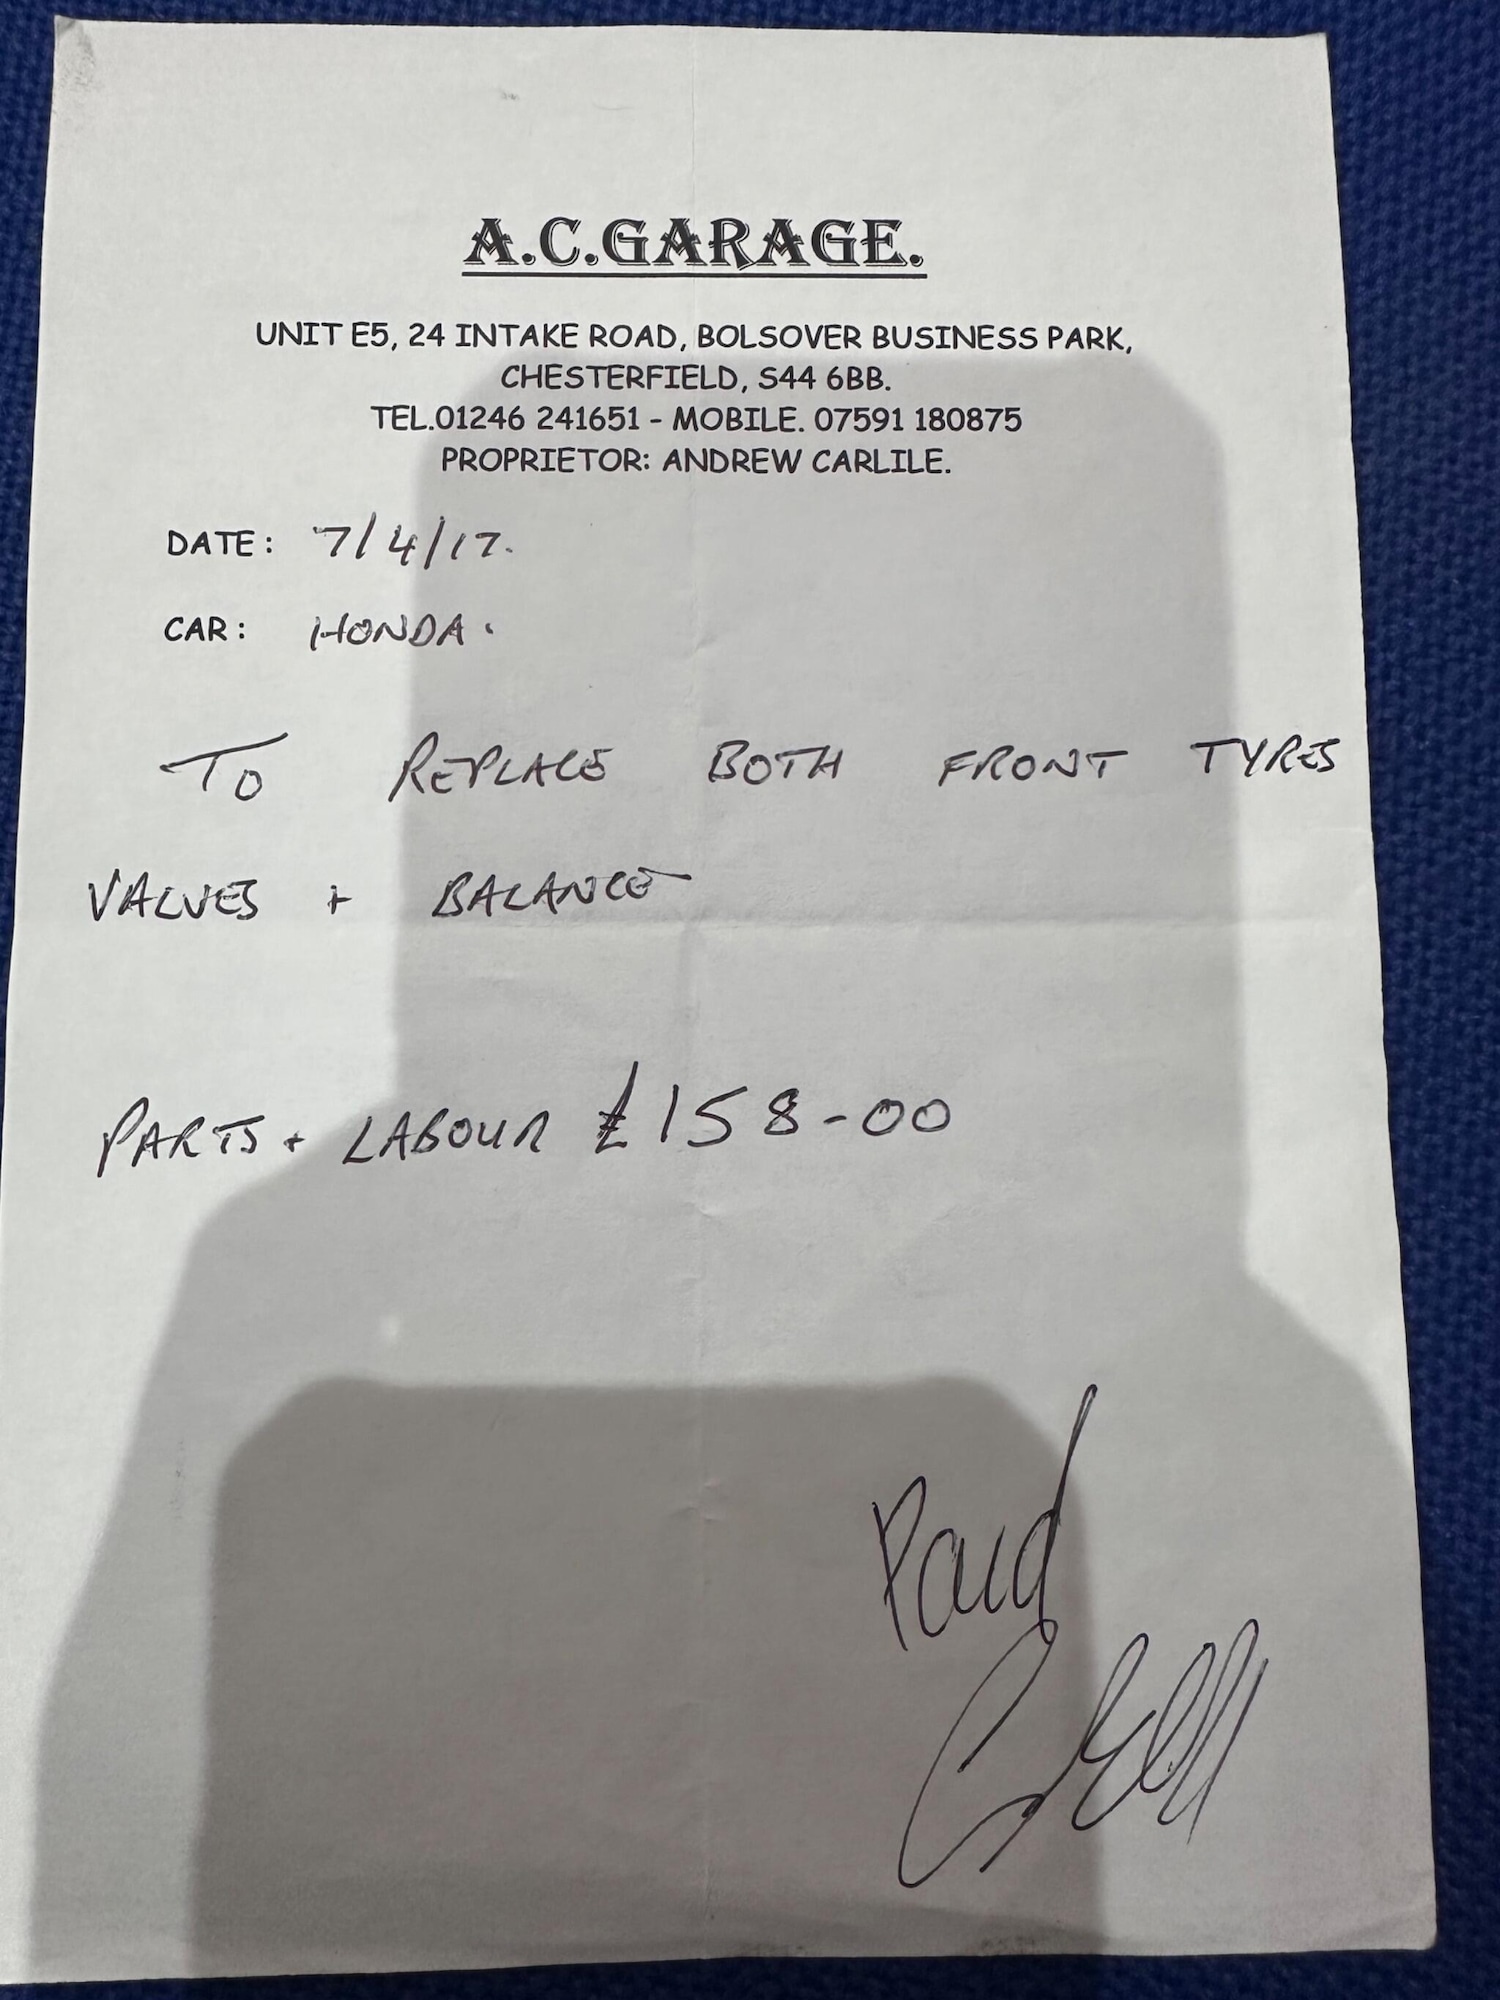 A.C.GARAGE.
UNIT E5, 24 INTAKE ROAD, BOLSOVER BUSINESS PARK,
CHESTERFIELD, S44 6BB.
TEL.01246 241651 - MOBILE. 07591 180875
PROPRIETOR: ANDREW CARLILE.
DATE: 7/4/17.
CAR: HONDA.
TO REPLACE BOTH FRONT TYRES
VALVES + BALANCE
PARTS + LABOUR £158-00
Paid